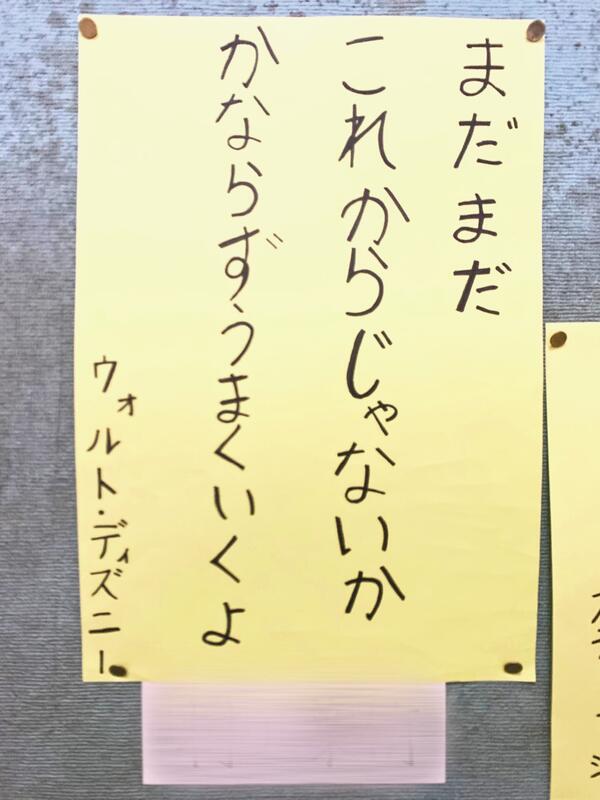 まだまだ
これからじゃないか
かならずうまくいくよ
ウォルト・ディズニー